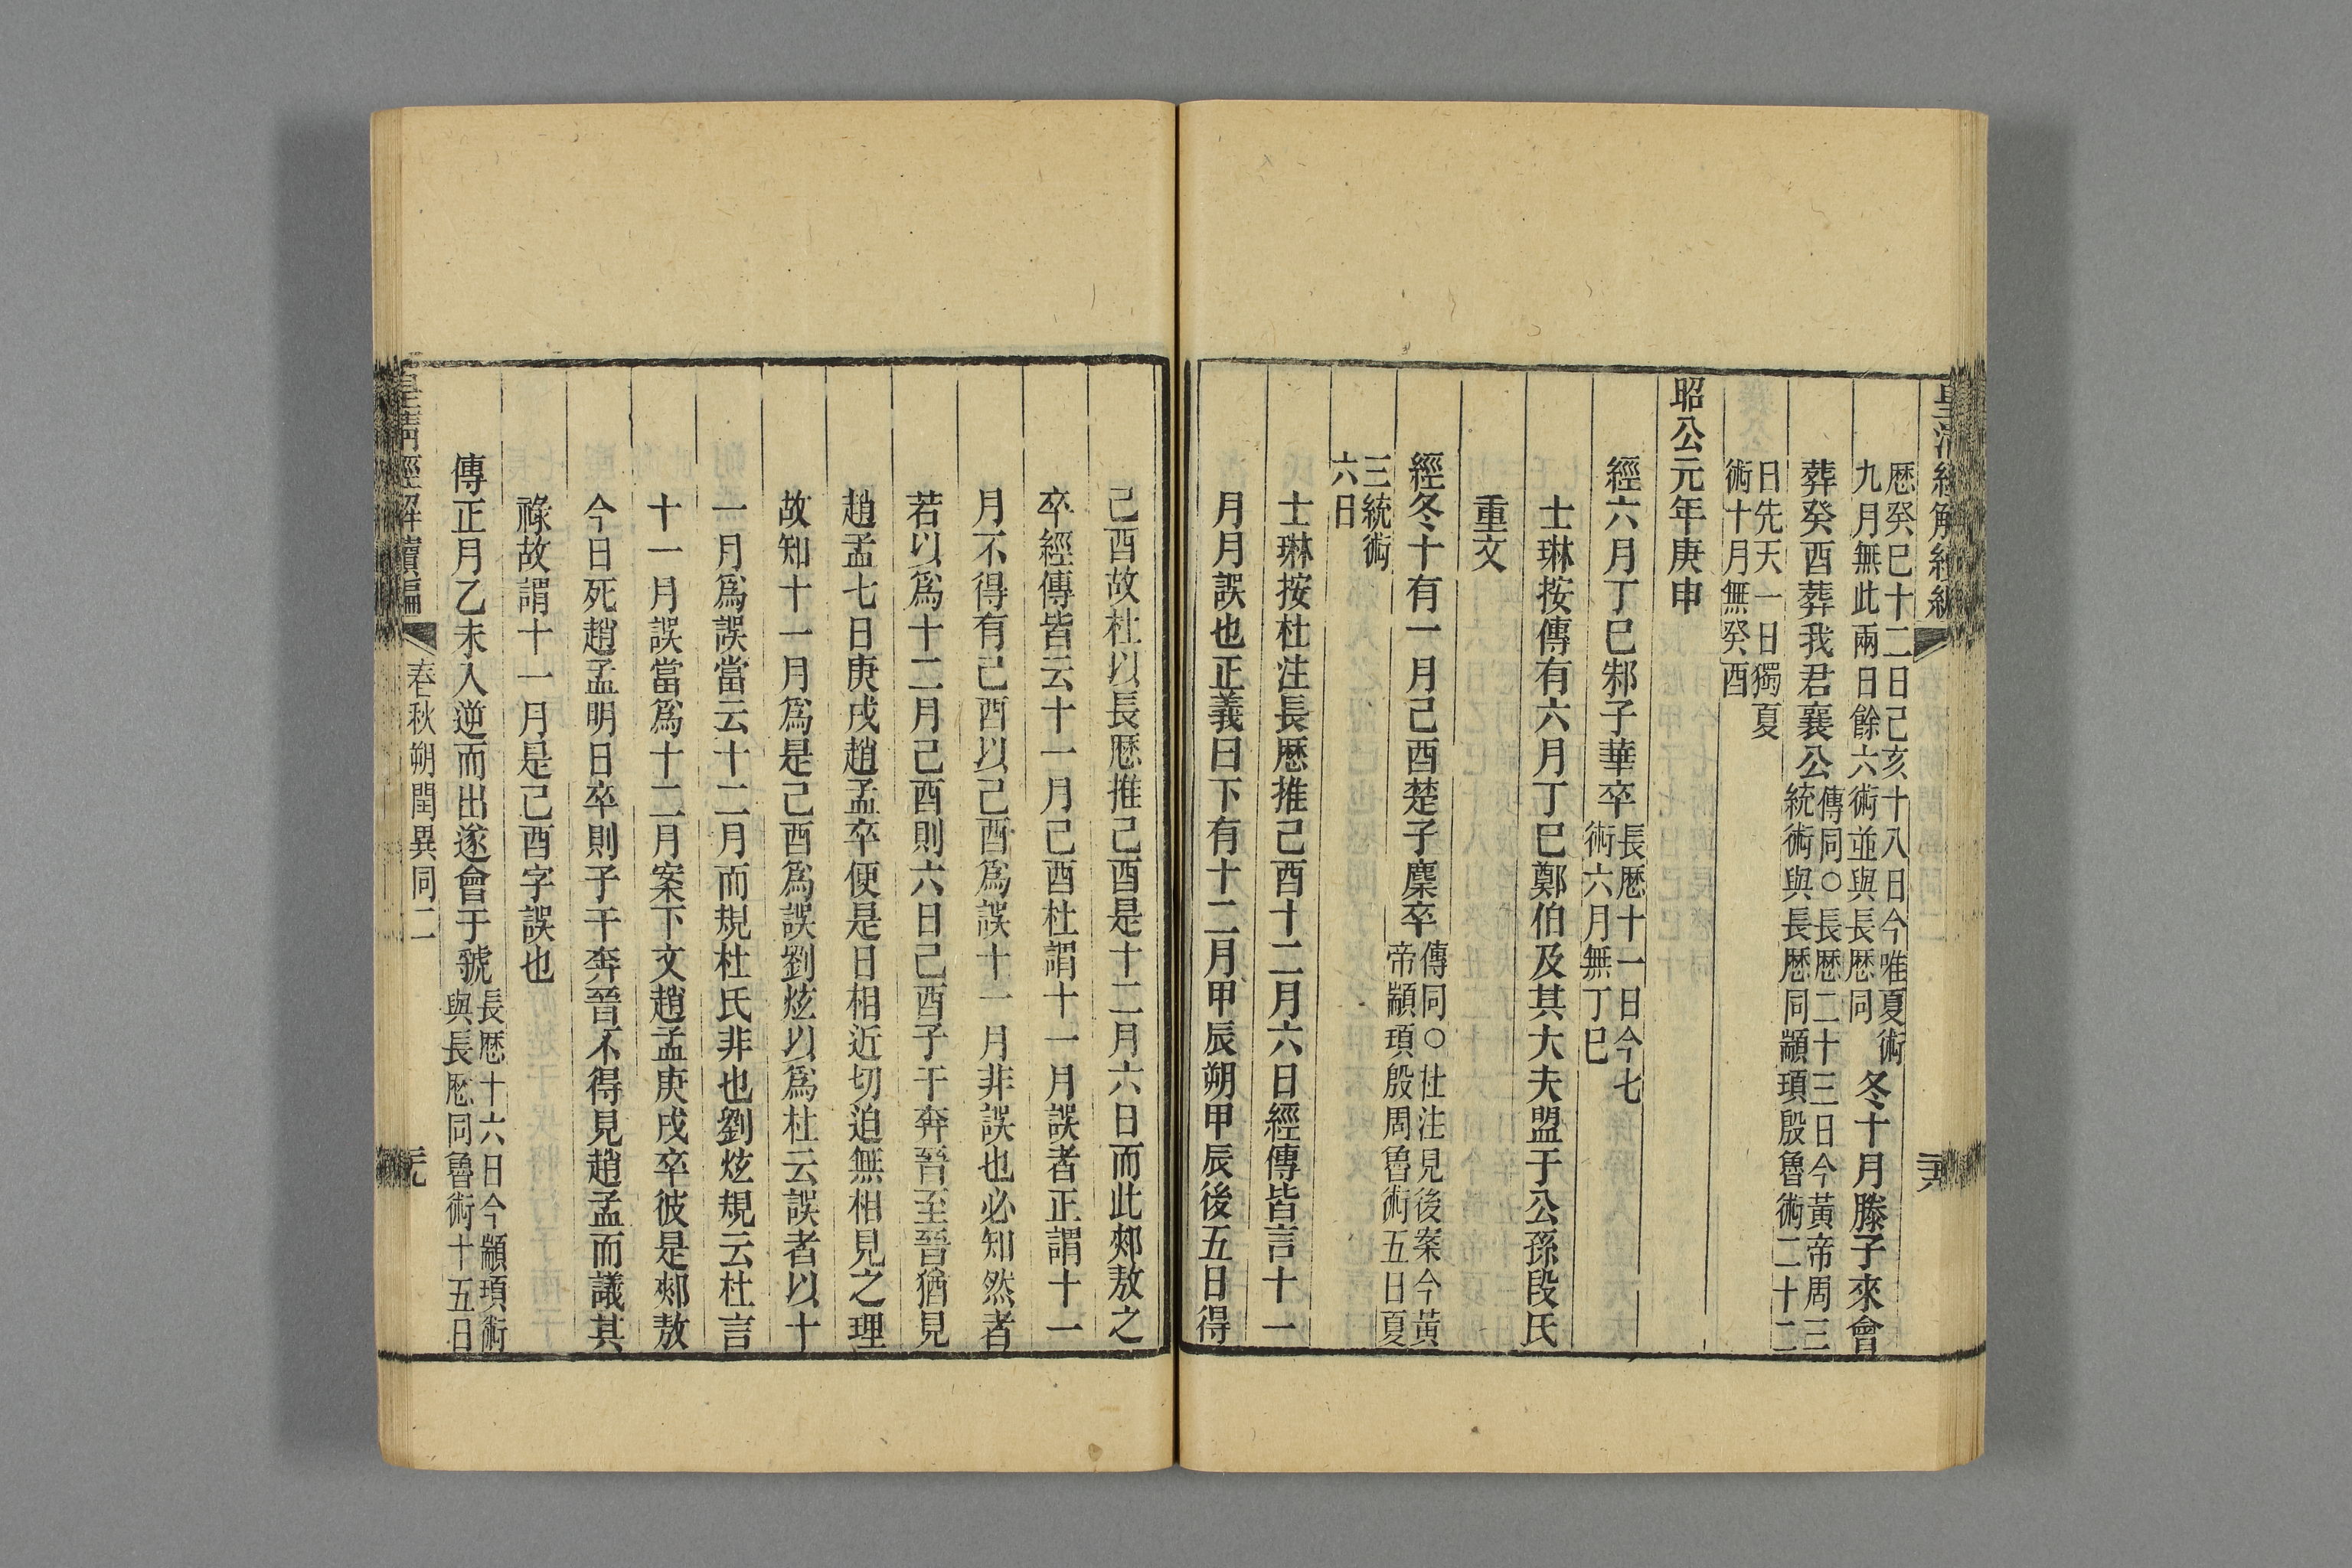 曆癸巳十二日己亥十八日今唯夏術
九月無此兩日餘六術並與長曆同
冬十月滕子來會
葬癸酉葬我君襄公
傳同○長曆二十三日今黃帝周三
統術與長曆同顓頊殷魯術二十二
日先天一日獨夏
術十月無癸酉
昭公元年庚申
經六月丁巳邾子華卒
長曆十一日今七
術六月無丁巳
士琳按傳有六月丁巳鄭伯及其大夫盟于公孫段氏
重文
經冬十有一月己酉楚子麇卒
傳同○杜注見後案今黃
帝顓頊殷周魯術五日夏
三統術
六日
士琳按杜注長曆推己酉十二月六日經傳皆言十一
月月誤也正義曰下有十二月甲辰朔甲辰後五日得
己酉故杜以長曆推己酉是十二月六日而此郟敖之
卒經傳皆云十一月己酉杜謂十一月誤者正謂十一
月不得有己酉以己酉爲誤十一月非誤也必知然者
若以爲十二月己酉則六日己酉子干奔晉至晉猶見
趙孟七日庚戌趙孟卒便是日相近切迫無相見之理
故知十一月爲是己酉爲誤劉炫以爲杜云誤者以十
一月爲誤當云十二月而規杜氏非也劉炫規云杜言
十一月誤當爲十二月案下文趙孟庚戌卒彼是郟敖
今日死趙孟明日卒則子干奔晉不得見趙孟而議其
祿故謂十一月是己酉字誤也
傳正月乙未入逆而出遂會于虢
長曆十六日今顓頊術
與長曆同魯術十五日
皇清經解續編
春秋朔閏異同二